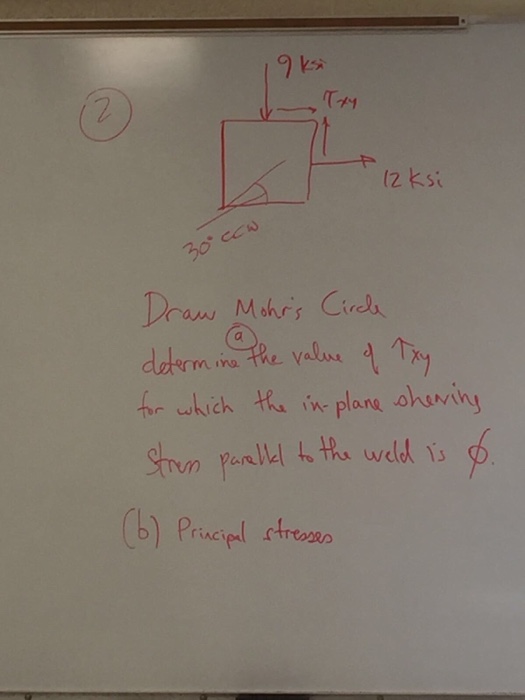 2
9 ksi
τxy
12 ksi
30° ccw
Draw Mohr's Circle
(a)
determine the value of τxy
for which the in-plane shearing
stress parallel to the weld is ∅.
(b) Principal stresses